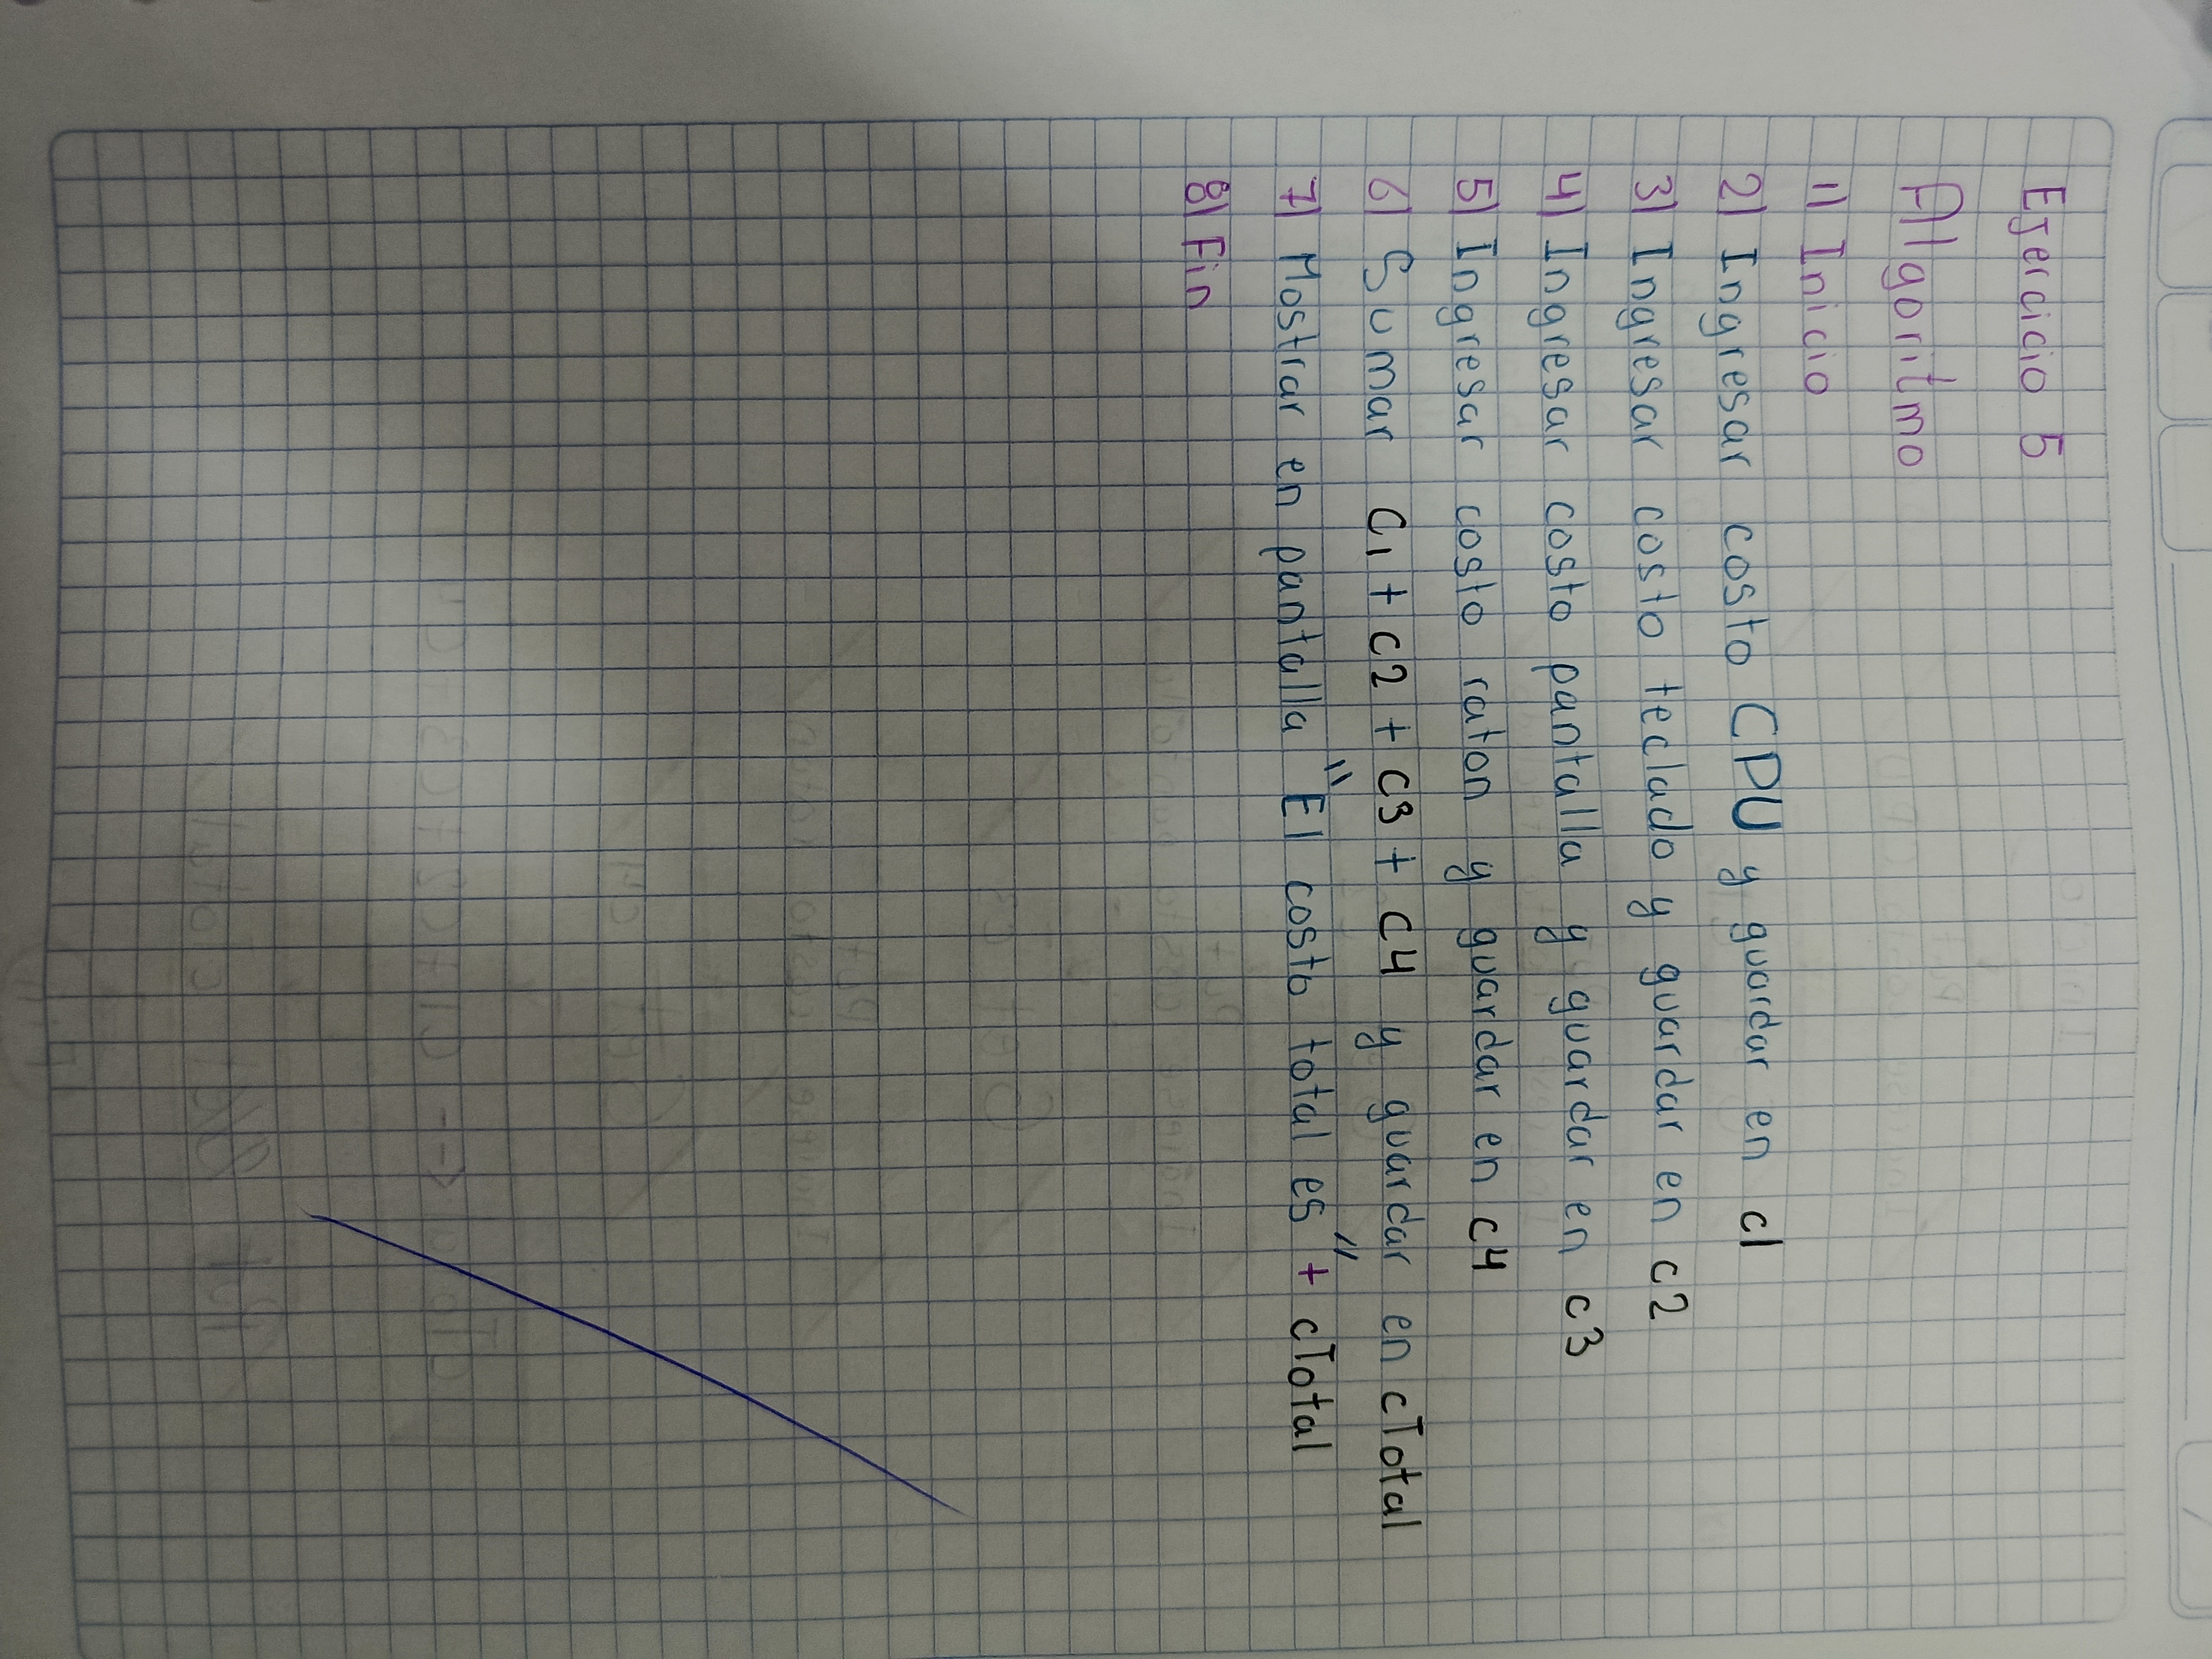 Ejercicio 5
Algoritmo
1) Inicio
2) Ingresar costo CPU y guardar en c1
3) Ingresar costo teclado y guardar en c2
4) Ingresar costo pantalla y guardar en c3
5) Ingresar costo raton y guardar en c4
6) Sumar C1 + c2 + c3 + c4 y guardar en cTotal
7) Mostrar en pantalla "El costo total es" + cTotal
8) Fin